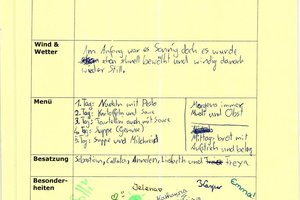 Wind & Wetter
Am Anfang war es Sonnig doch es wurde
schnell bewölkt und windig danach
wieder Still.
Menü
1. Tag: Nudeln mit Pesto
2. Tag: Kartoffeln und Sause
3. Tag: Tortellini auch mit Sause
4. Tag: Suppe (Gemüse)
5. Tag: Suppe und Milchreis
Morgens immer
Müsli und Obst
Mittags brot mit
Aufstrich und belag
Besatzung
Sebastian, Annelen, Lisbeth und Freya
Besonder-
heiten
Jelena
Katharina
Emma